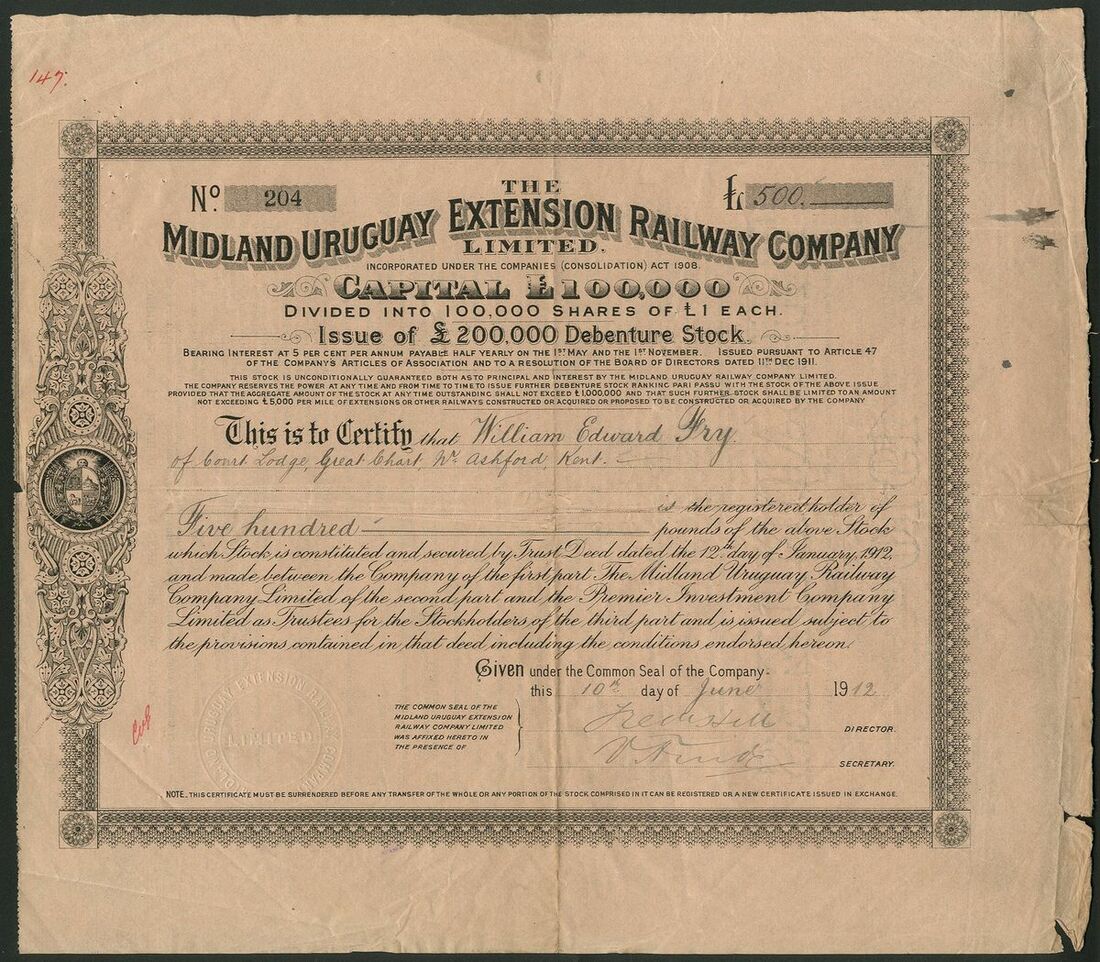 147.
Nº 204
£ 500.
THE
MIDLAND URUGUAY EXTENSION RAILWAY COMPANY
LIMITED.
INCORPORATED UNDER THE COMPANIES (CONSOLIDATION) ACT 1908.
CAPITAL £100,000
DIVIDED INTO 100,000 SHARES OF £1 EACH.
Issue of £200,000 Debenture Stock,
BEARING INTEREST AT 5 PER CENT PER ANNUM PAYABLE HALF YEARLY ON THE 1ST MAY AND THE 1ST NOVEMBER. ISSUED PURSUANT TO ARTICLE 47
OF THE COMPANY'S ARTICLES OF ASSOCIATION AND TO A RESOLUTION OF THE BOARD OF DIRECTORS DATED 11TH DEC. 1911.
THIS STOCK IS UNCONDITIONALLY GUARANTEED BOTH AS TO PRINCIPAL AND INTEREST BY THE MIDLAND URUGUAY RAILWAY COMPANY LIMITED.
THE COMPANY RESERVES THE POWER AT ANY TIME AND FROM TIME TO TIME TO ISSUE FURTHER DEBENTURE STOCK RANKING PARI PASSU WITH THE STOCK OF THE ABOVE ISSUE
PROVIDED THAT THE AGGREGATE AMOUNT OF THE STOCK AT ANY TIME OUTSTANDING SHALL NOT EXCEED £1,000,000 AND THAT SUCH FURTHER STOCK SHALL BE LIMITED TO AN AMOUNT
NOT EXCEEDING £5,000 PER MILE OF EXTENSIONS OR OTHER RAILWAYS CONSTRUCTED OR ACQUIRED OR PROPOSED TO BE CONSTRUCTED OR ACQUIRED BY THE COMPANY
This is to Certify that William Edward Fry.
of Court Lodge, Great Chart, Nr. Ashford, Kent.
is the registered holder of
Five hundred pounds of the above Stock
which Stock is constituted and secured by Trust Deed dated the 12th day of January, 1912,
and made between the Company of the first part The Midland Uruguay Railway
Company Limited of the second part and the Premier Investment Company
Limited as Trustees for the Stockholders of the third part and is issued subject to
the provisions contained in that deed including the conditions endorsed hereon.
Given under the Common Seal of the Company
this 10th day of June 1912
THE COMMON SEAL OF THE
MIDLAND URUGUAY EXTENSION
RAILWAY COMPANY LIMITED
WAS AFFIXED HERETO IN
THE PRESENCE OF
DIRECTOR.
SECRETARY.
LIMITED
NOTE. THIS CERTIFICATE MUST BE SURRENDERED BEFORE ANY TRANSFER OF THE WHOLE OR ANY PORTION OF THE STOCK COMPRISED IN IT CAN BE REGISTERED OR A NEW CERTIFICATE ISSUED IN EXCHANGE.